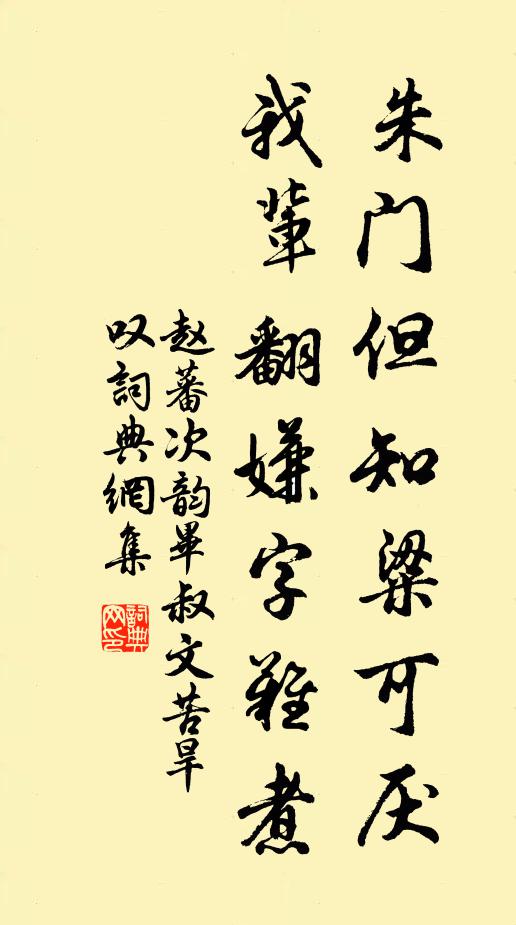 朱门但知粱可厌
我辈翻嫌字难煮
赵蕃次韵毕叔文苦旱
叹词典网集
词典网印